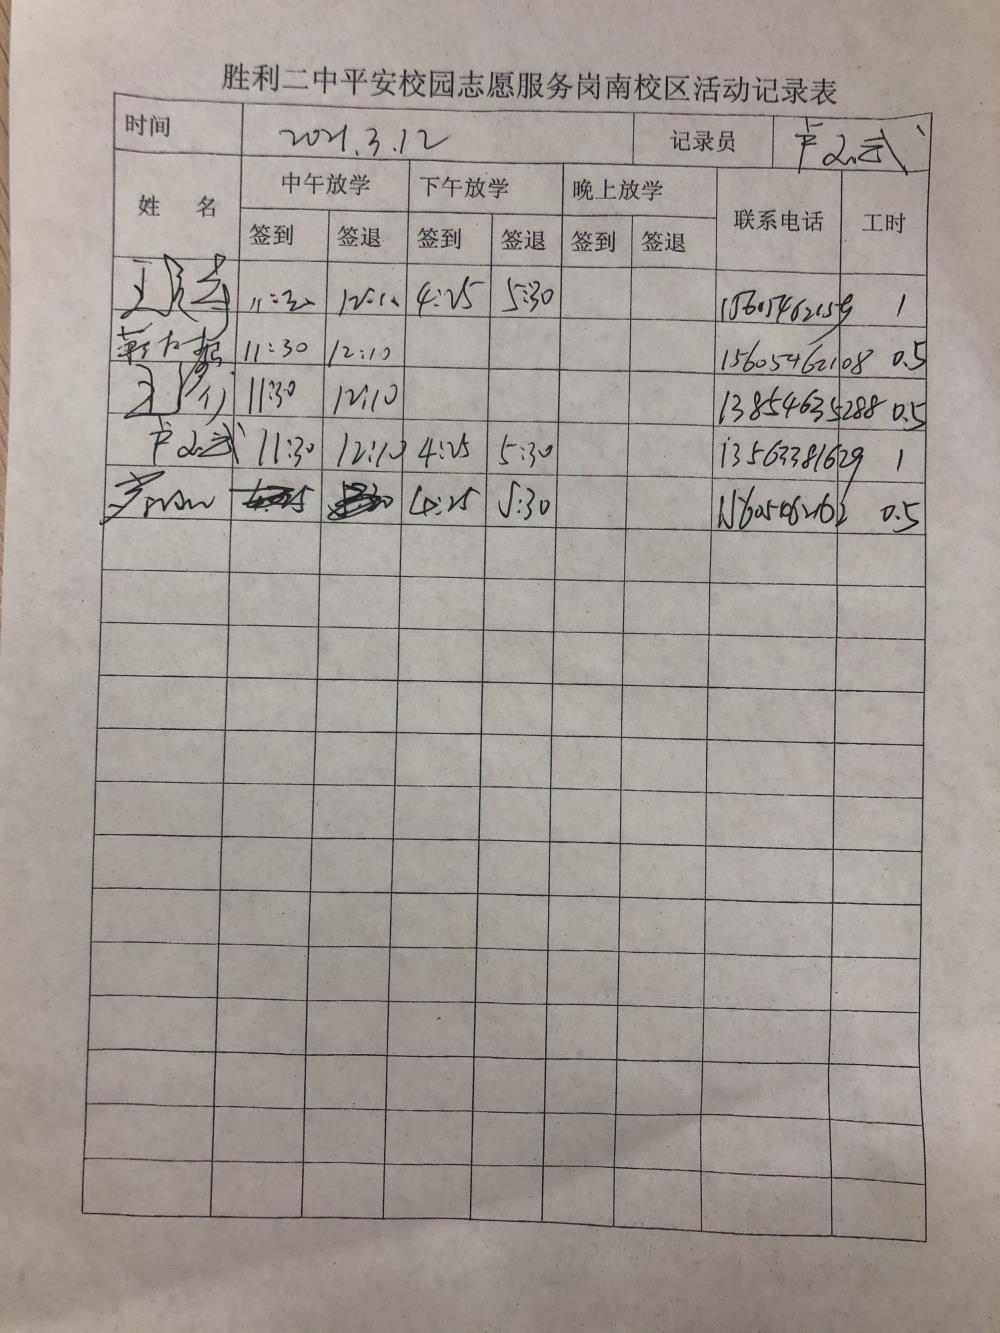 胜利二中平安校园志愿服务岗南校区活动记录表
时间 2021.3.12 记录员
姓 名 中午放学 下午放学 晚上放学 联系电话 工时
签到 签退 签到 签退 签到 签退
4:25 5:30 1
11:30 12:10 15605462108 0.5
11:30 12:10 13854635288 0.5
11:30 12:10 4:25 5:30 13563381629 1
4:25 5:30 0.5